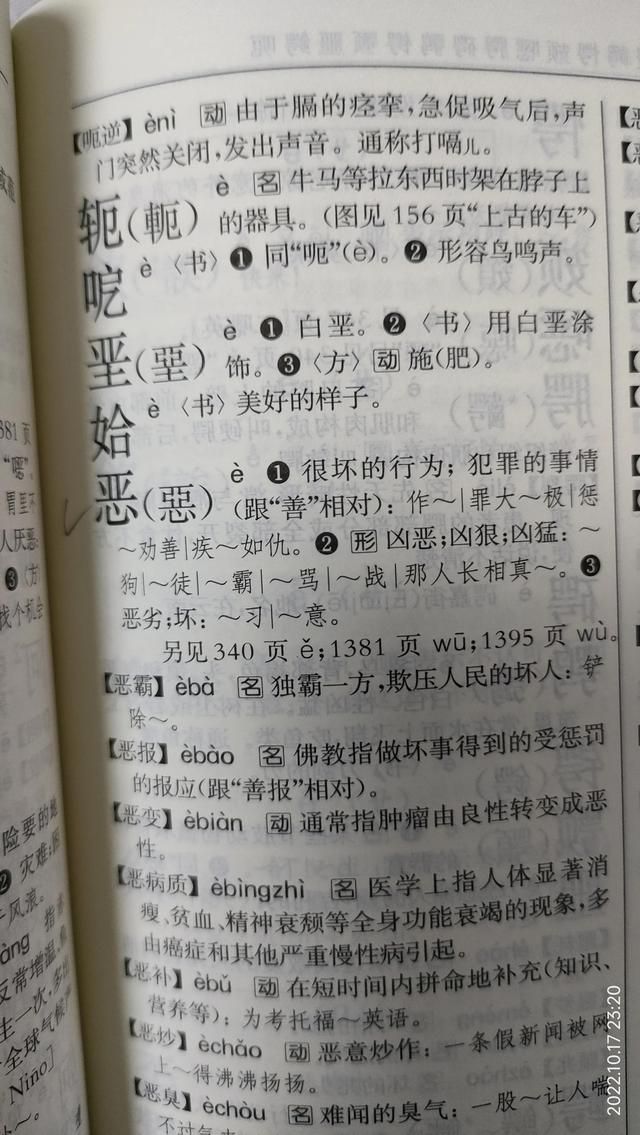 【呃逆】 ènì 动 由于膈的痉挛，急促吸气后，声
门突然关闭，发出声音。通称打嗝儿。
轭(軛) è 名 牛马等拉东西时架在脖子上
的器具。(图见 156 页“上古的车”)
呝 è 〈书〉❶ 同“呃”(è)。❷ 形容鸟鸣声。
垩(堊) è ❶ 白垩。❷〈书〉用白垩涂
饰。❸〈方〉动 施(肥)。
姶 è〈书〉美好的样子。
恶(惡) è ❶ 很坏的行为；犯罪的事情
(跟“善”相对)：作～|罪大～极|惩
～劝善|疾～如仇。❷ 形 凶恶;凶狠;凶猛：～
狗|～徒|～霸|～骂|～战|那人长相真～。❸
恶劣;坏：～习|～意。
另见 340 页 ě；1381 页 wū；1395 页 wù。
【恶霸】 èbà 名 独霸一方，欺压人民的坏人：铲
除～。
【恶报】 èbào 名 佛教指做坏事得到的受惩罚
的报应(跟“善报”相对)。
【恶变】 èbiàn 动 通常指肿瘤由良性转变成恶
性。
【恶病质】 èbìngzhì 名 医学上指人体显著消
瘦、贫血、精神衰颓等全身功能衰竭的现象，多
由癌症和其他严重慢性病引起。
【恶补】 èbǔ 动 在短时间内拼命地补充(知识、
营养等)：为考托福～英语。
【恶炒】 èchǎo 动 恶意炒作：一条假新闻被网
上～得沸沸扬扬。
【恶臭】 èchòu 名 难闻的臭气：一股～让人喘
不过气
381 页
“嗯”。
胃里不
人厌恶
❸〈方
找个机会
险要的
❷ 灾难
风浪。
àng 指
反常增温
生一次，多
全球气候
Nino]
2022.10.17 23:20